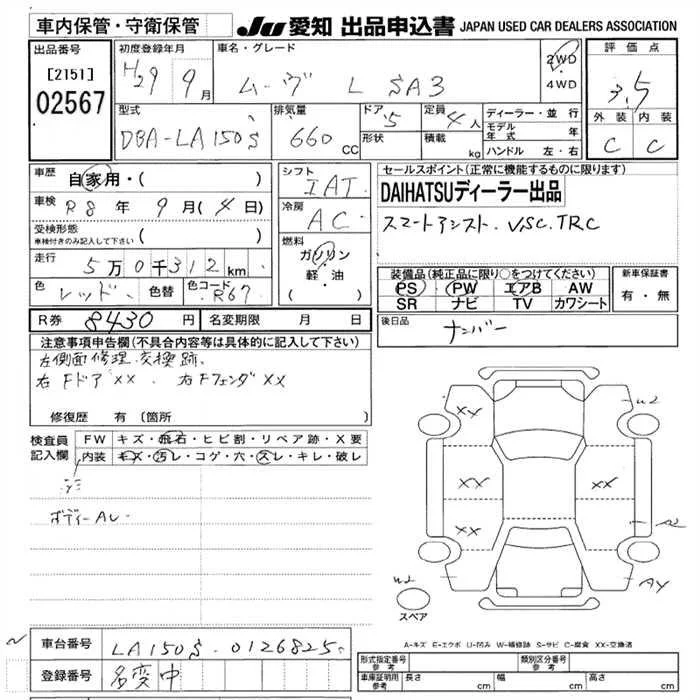 車内保管・守衛保管
JU 愛知 出品申込書 JAPAN USED CAR DEALERS ASSOCIATION
出品番号
[2151]
02567
初度登録年月
H29 9月
車名・グレード
ムーヴ L SA3
2WD
4WD
評価点
3.5
外装 内装
C C
型式
DBA-LA150S
排気量
660 CC
ドア 5
形状
定員 4人
積載 kg
ディーラー・並行
モデル年式 年
ハンドル 左・右
車歴 自家用・( )
車検 R8年 9月(4日)
受検形態
車検付きのみ記入して下さい ( )
走行 5万0千312km
色 レッド 色替 色コード R67
シフト
IAT
冷房
AC
燃料
ガソリン
軽・油
セールスポイント(正常に機能するものに限ります)
DAIHATSUディーラー出品
スマートアシスト. VSC. TRC
装備品(純正品に限り○をつけてください)
PS PW エアB AW
SR ナビ TV カワシート
新車保証書
有・無
R券 8430円 名変期限 月 日
後日品
ナンバー
注意事項申告欄(不具合内容等は具体的に記入して下さい)
左側面修理.交換跡.
右Fドア××. 右Fフェンダ××
修復歴 有(箇所 )
検査員記入欄
FW キズ・飛石・ヒビ割・リペア跡・X要
内装 キズ・汚レ・コゲ・穴・スレ・キレ・破レ
ボディーAu.
XX
U2
XX
XX
XX
U2
AY
スペア
A-キズ E-エクボ U-凹み W-補修跡 S-サビ C-腐食 XX-交換済
車台番号 LA150S-0126825
登録番号 名変中
形式指定番号
参考
類別区分番号
参考
車庫証明用
参考
長さ cm 幅 cm 高さ cm